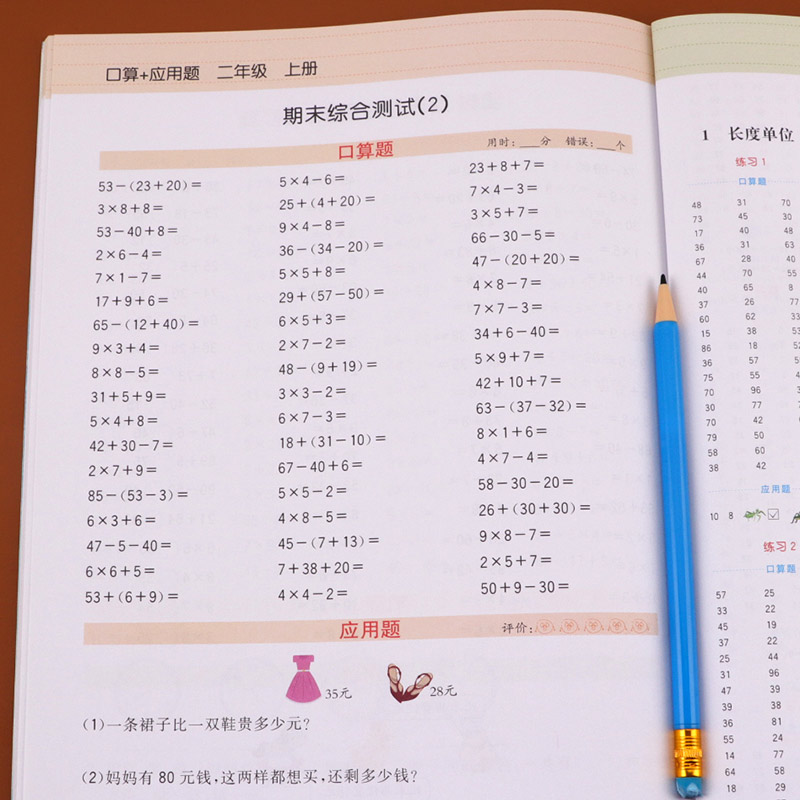 口算+应用题 二年级 上册
期末综合测试(2)
口算题 用时:___分 错误:___个
53－(23＋20)＝
3×8＋8＝
53－40＋8＝
2×6－4＝
7×1－7＝
17＋9＋6＝
65－(12＋40)＝
9×3＋4＝
8×8－5＝
31＋5＋9＝
5×4＋8＝
42＋30－7＝
2×7＋9＝
85－(53－3)＝
6×3＋6＝
47－5－40＝
6×6＋5＝
53＋(6＋9)＝
5×4－6＝
25＋(4＋20)＝
9×4－8＝
36－(34－20)＝
5×5＋8＝
29＋(57－50)＝
6×5＋3＝
2×7－2＝
48－(9＋19)＝
3×3－2＝
6×7－3＝
18＋(31－10)＝
67－40＋6＝
5×5－2＝
4×8－5＝
45－(7＋13)＝
7＋38＋20＝
4×4－2＝
23＋8＋7＝
7×4－3＝
3×5＋7＝
66－30－5＝
47－(20＋20)＝
4×8－7＝
7×7－3＝
34＋6－40＝
5×9＋7＝
42＋10＋7＝
63－(37－32)＝
8×1＋6＝
4×7－4＝
58－30－20＝
26＋(30＋30)＝
9×8－7＝
2×5＋7＝
50＋9－30＝
应用题 评价:
35元 28元
(1)一条裙子比一双鞋贵多少元?
(2)妈妈有 80 元钱,这两样都想买,还剩多少钱?
1 长度单位
练习1
口算题
48 31 70
73 45 30
17 40 48
36 31 63
67 28 40
44 70 55
40 65 8
37 26 77
60 62 33
15 38
86 18
36 57
75 55
70 96
30 77
70 42
79 50
58 60
38 42
应用题
10 8
练习2
口算题
57 25
33 22
45 19
37 22
25 44
31 96
47 39
39 38
36 81
55 24
14 77
64 58
18 25